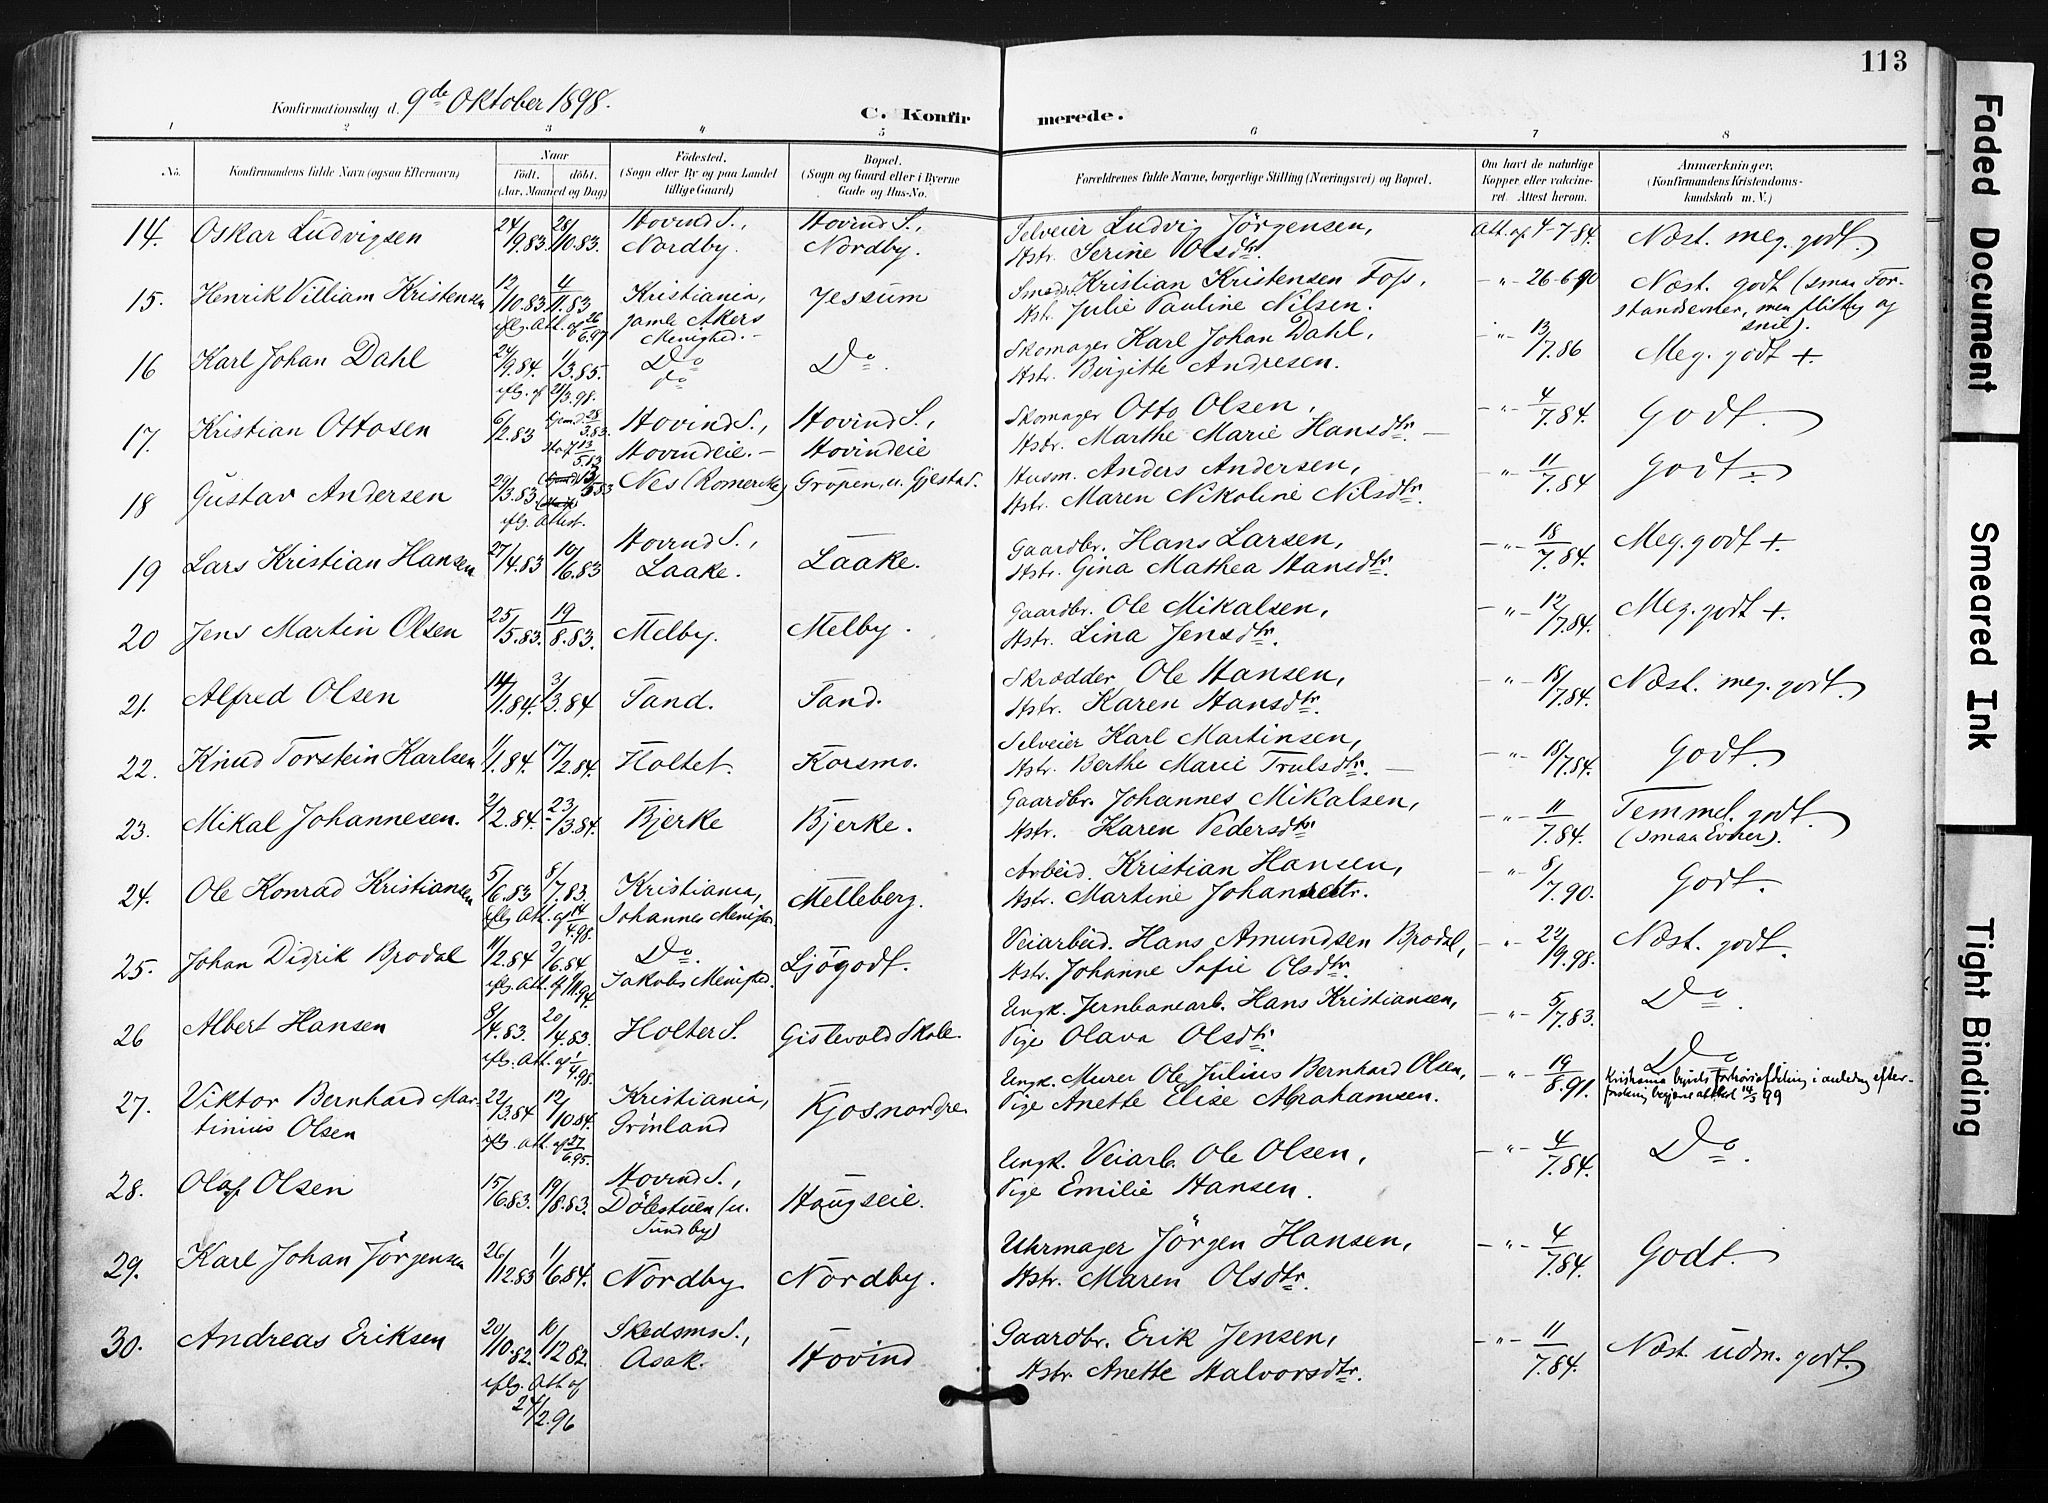 113
Konfirmationsdag d. 9de Oktober 1898.
C. Konfirmerede.
1 2 3 4 5 6 7 8
No.
Konfirmandens fulde Navn (ogsaa Efternavn)
Naar
Födt. döbt.
(Aar, Maaned og Dag)
Födested.
(Sogn eller By og paa Landet
tillige Gaard)
Bopæl.
(Sogn og Gaard eller i Byerne
Gade og Hus-No.
Forældrenes fulde Navne, borgerlige Stilling (Næringsvei) og Bopæl.
Om havt de naturlige
Kopper eller vakcine-
ret. Attest herom.
Anmærkninger.
(Konfirmandens Kristendoms-
kundskab m. V.)
14. Oskar Ludvigsen 24/9.83 28/10.83. Hovind S., Nordby. Hovind S., Nordby. Selveier Ludvig Jörgensen,
Hstr. Serine Olsdtr. Att. af 4-7-84. Næst. meg. godt.
15. Henrik Villiam Kristensen 12/10.83 4/11.83 Kristiania, Jessum Smedsv. Kristian Kristensen Foss, -"- 26-6-90 Næst. godt (smaa For-
eflg. Att. af 26/6.97 Gamle Akers Menighed. - Hstr. Julie Pauline Nilsen. standsevner, men flittig og snil).
16 Karl Johan Dahl 24/9.84. 1/3.85. Do Do. Skomager Karl Johan Dahl, -"- 13/7.86 Meg. godt +
eflg. af 21/3.98. do Hstr. Birgitte Andresen.
17. Kristian Ottosen 6/2.83 Hjemd. 25/2.83. Hovind S., Hovind S., Skomager Otto Olsen, -"- 4/7.84. Godt.
13/5.83 Hovindeie. - Hovindeie Hstr. Marthe Marie Hansdtr. -
18 Gustav Andersen 29/3.83 13/5.83 Nes (Romerike) Gropen, u. Gjestad. Husm. Anders Andersen, -"- 11/7.84 Godt.
eflg. Attest. Hstr. Maren Nikoline Nilsdtr.
19 Lars Kristian Hansen 27/4.83 10/6.83 Hovind S., Laake. Laake. Gaardbr. Hans Larsen, -"- 18/7.84. Meg. godt +.
Hstr. Gina Mathea Hansdtr.
20 Jens Martin Olsen 25/5.83. 19/8.83. Melby. Melby. Gaardbr. Ole Mikalsen, -"- 12/7.84. Meg. godt +
Hstr. Lina Jensdtr.
21. Alfred Olsen 14/1.84. 3/3.84 Tand. Tand. Skrædder Ole Hansen, -"- 18/7.84. Næst. meg. godt.
Hstr. Karen Hansdtr.
22. Knud Torstein Karlsen 1/1.84. 17/2.84. Holtet. Korsmo. Selveier Karl Martinsen, -"- 18/7.84. Godt.
Hstr. Berthe Marie Trulsdtr. -
23. Mikal Johannesen. 2/2.84. 23/3.84. Bjerke Bjerke. Gaardbr. Johannes Mikalsen, -"- 11/7.84. Temmel. godt.
Hstr. Karen Pedersdtr (smaa Evner).
24. Ole Konrad Kristiansen 5/6.83 8/7.83. Kristiania, Melleberg. Arbeid. Kristian Hansen, -"- 8/7.90. Godt.
eflg. Att. af 14/4.98. Johannes Menighed. Hstr. Martine Johansdtr.
25. Johan Didrik Brodal 11/2.84 2/6.84 Do. Ljögodt. Veiarbeid. Hans Amundsen Brodal, -"- 22/9.98. Næst. godt.
eflg. Att. af Jakobs Menighed. Hstr. Johanne Sofie Olsdtr.
26 Albert Hansen 8/4.83. 20/4.83. Holter S. Gistevold Skole. Ungk. Jernbanearb. Hans Kristiansen, -"- 5/7.83. Do.
eflg. Att. af 1/4.98. Pige Olava Olsdtr
27. Viktor Bernhard Mar- 22/3.84 12/10.84. Kristiania, Kjos nordre Ungk. Murer Ole Julius Bernhard Olsen, -"- 19/8.91. Do
tinius Olsen eflg. Att. af 27/6.95. Grönland Pige Anette Elise Abrahamsen. Kristiania byrets forhörsafdeling i anledng efter-
forskning begjæret attest 14/3 99
28. Olaf Olsen 15/6.83. 19/8.83. Hovind S., Haugseie. Ungk. Veiarb. Ole Olsen, -"- 4/7.84. Do.
Dölestuen (u. Sundby) Pige Emilie Hansen.
29. Karl Johan Jörgensen 26/12.83 1/6.84. Nordby Nordby. Uhrmager Jörgen Hansen, -"- 4/7.84. Godt.
Hstr. Maren Olsdtr
30. Andreas Eriksen 20/10.82. 10/12 82. Skedsmo S., Asak. Hovind Gaardbr. Erik Jensen, -"- 11/7.84. Næst. udm. godt.
eflg. Att. af 24/2.96 Hstr. Anette Halvorsdtr.
Faded Document
Smeared Ink
Tight Binding